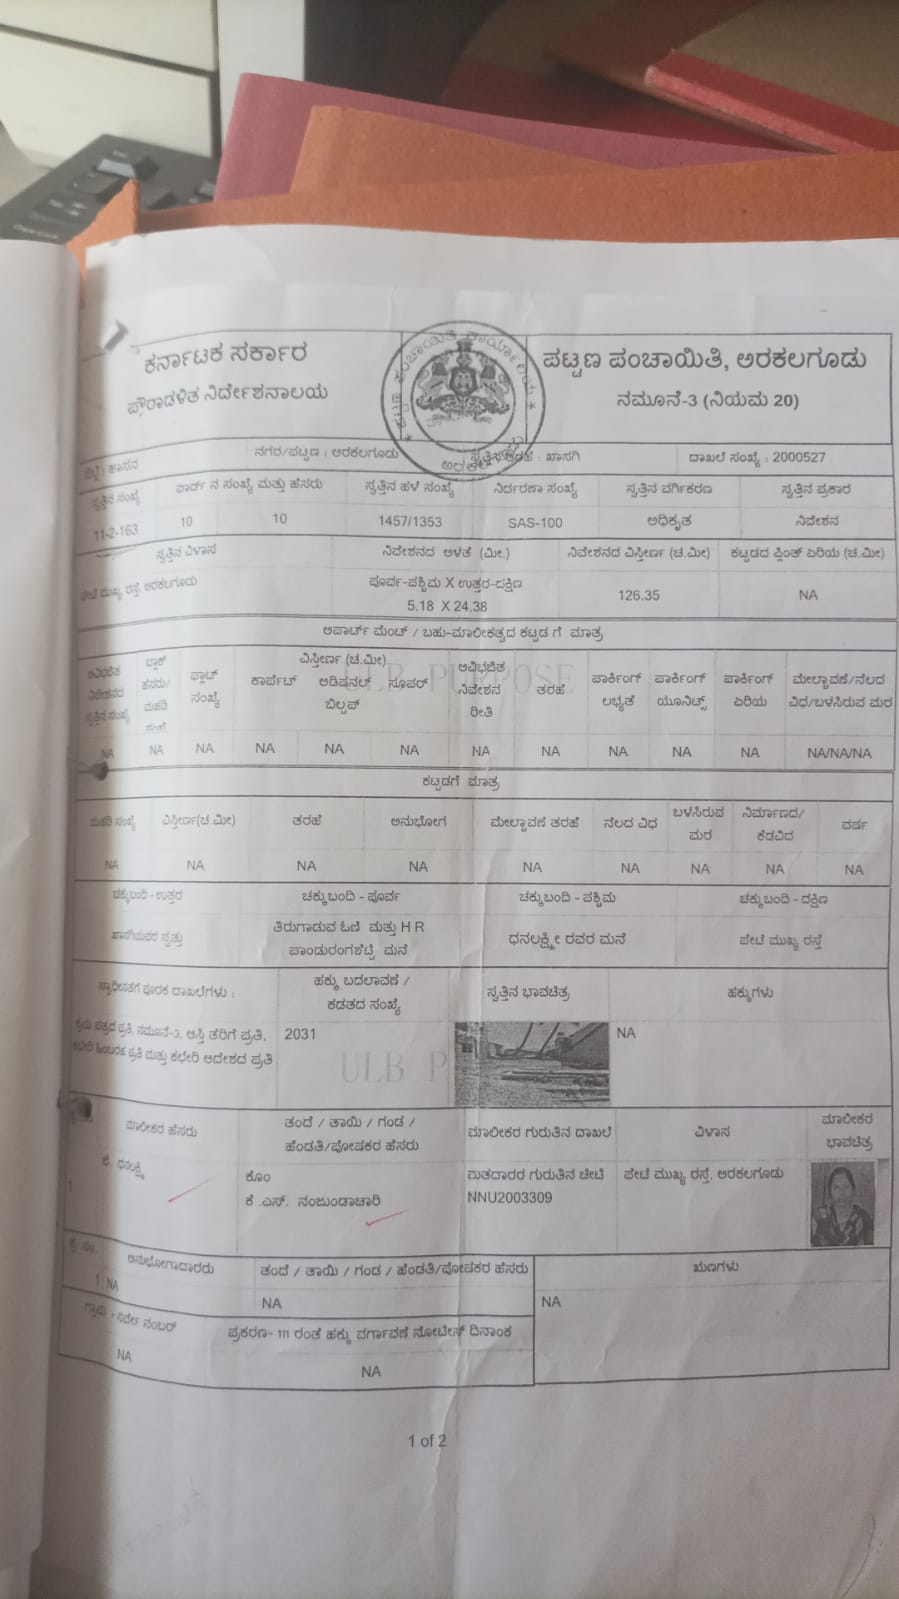 ಕರ್ನಾಟಕ ಸರ್ಕಾರ
ಪೌರಾಡಳಿತ ನಿರ್ದೇಶನಾಲಯ
ಪಟ್ಟಣ ಪಂಚಾಯಿತಿ, ಅರಕಲಗೂಡು
ನಮೂನೆ-3 (ನಿಯಮ 20)
ಜಿಲ್ಲೆ : ಹಾಸನ ನಗರ/ಪಟ್ಟಣ : ಅರಕಲಗೂಡು ಸ್ವತ್ತಿನ ತರಹೆ : ಖಾಸಗಿ ದಾಖಲೆ ಸಂಖ್ಯೆ : 2000527
ಸ್ವತ್ತಿನ ಸಂಖ್ಯೆ ವಾರ್ಡ್ ನ ಸಂಖ್ಯೆ ಮತ್ತು ಹೆಸರು ಸ್ವತ್ತಿನ ಹಳೆ ಸಂಖ್ಯೆ ನಿರ್ದರಣಾ ಸಂಖ್ಯೆ ಸ್ವತ್ತಿನ ವರ್ಗಿಕರಣ ಸ್ವತ್ತಿನ ಪ್ರಕಾರ
11-2-163 10 10 1457/1353 SAS-100 ಅಧಿಕೃತ ನಿವೇಶನ
ಸ್ವತ್ತಿನ ವಿಳಾಸ ನಿವೇಶನದ ಅಳತೆ (ಮೀ.) ನಿವೇಶನದ ವಿಸ್ತೀರ್ಣ (ಚ.ಮೀ) ಕಟ್ಟಡದ ಪ್ಲಿಂತ್ ಏರಿಯ (ಚ.ಮೀ)
ಪೇಟೆ ಮುಖ್ಯ ರಸ್ತೆ, ಅರಕಲಗೂಡು ಪೂರ್ವ-ಪಶ್ಚಿಮ X ಉತ್ತರ-ದಕ್ಷಿಣ 126.35 NA
5.18 X 24.38
ಅಪಾರ್ಟ್ ಮೆಂಟ್ / ಬಹು-ಮಾಲೀಕತ್ವದ ಕಟ್ಟಡ ಗೆ ಮಾತ್ರ
ULB PURPOSE
ಅವಿಭಜಿತ ಬ್ಲಾಕ್ ಫ್ಲಾಟ್ ವಿಸ್ತೀರ್ಣ (ಚ.ಮೀ) ಅವಿಭಜಿತ ಪಾರ್ಕಿಂಗ್ ಪಾರ್ಕಿಂಗ್ ಪಾರ್ಕಿಂಗ್ ಮೇಲ್ಛಾವಣೆ/ನೆಲದ
ನಿವೇಶನದ ಹೆಸರು/ ಸಂಖ್ಯೆ ಕಾರ್ಪೆಟ್ ಅಡಿಷನಲ್ ಸೂಪರ್ ನಿವೇಶನ ತರಹೆ ಲಭ್ಯತೆ ಯೂನಿಟ್ಸ್ ಏರಿಯ ವಿಧ/ಬಳಸಿರುವ ಮರ
ಸ್ವತ್ತಿನ ಸಂಖ್ಯೆ ಮಹಡಿ ಬಿಲ್ಟಪ್ ರೀತಿ
ಸಂಖ್ಯೆ
NA NA NA NA NA NA NA NA NA NA NA NA/NA/NA
ಕಟ್ಟಡಗೆ ಮಾತ್ರ
ಮಹಡಿ ಸಂಖ್ಯೆ ವಿಸ್ತೀರ್ಣ(ಚ.ಮೀ) ತರಹೆ ಅನುಭೋಗ ಮೇಲ್ಛಾವಣೆ ತರಹೆ ನೆಲದ ವಿಧ ಬಳಸಿರುವ ಮರ ನಿರ್ಮಾಣದ/ ಕೆಡವಿದ ವರ್ಷ
NA NA NA NA NA NA NA NA NA
ಚಕ್ಕುಬಂದಿ - ಉತ್ತರ ಚಕ್ಕುಬಂದಿ - ಪೂರ್ವ ಚಕ್ಕುಬಂದಿ - ಪಶ್ಚಿಮ ಚಕ್ಕುಬಂದಿ - ದಕ್ಷಿಣ
ಖಾಸಗಿಯವರ ಸ್ವತ್ತು ತಿರುಗಾಡುವ ಓಣಿ ಮತ್ತು H R ಧನಲಕ್ಷ್ಮೀ ರವರ ಮನೆ ಪೇಟೆ ಮುಖ್ಯ ರಸ್ತೆ
ಪಾಂಡುರಂಗಶೆಟ್ಟಿ ಮನೆ
ಸ್ವಾಧೀನತೆಗೆ ಪೂರಕ ದಾಖಲೆಗಳು : ಹಕ್ಕು ಬದಲಾವಣೆ / ಸ್ವತ್ತಿನ ಭಾವಚಿತ್ರ ಹಕ್ಕುಗಳು
ಕಡತದ ಸಂಖ್ಯೆ
ಕ್ರಯ ಪತ್ರದ ಪ್ರತಿ, ನಮೂನೆ-3, ಆಸ್ತಿ ತೆರಿಗೆ ಪ್ರತಿ, 2031 NA
ಕಛೇರಿ ಹಿಂಬರಹ ಪ್ರತಿ ಮತ್ತು ಕಛೇರಿ ಆದೇಶದ ಪ್ರತಿ
ULB P
ಮಾಲೀಕರ ಹೆಸರು ತಂದೆ / ತಾಯಿ / ಗಂಡ / ಮಾಲೀಕರ ಗುರುತಿನ ದಾಖಲೆ ವಿಳಾಸ ಮಾಲೀಕರ
ಹೆಂಡತಿ/ಪೋಷಕರ ಹೆಸರು ಭಾವಚಿತ್ರ
1 ಧನಲಕ್ಷ್ಮಿ ಕೊಂ ಮತದಾರರ ಗುರುತಿನ ಚೀಟಿ ಪೇಟೆ ಮುಖ್ಯ ರಸ್ತೆ, ಅರಕಲಗೂಡು
ಕೆ .ಎಸ್. ನಂಜುಂಡಾಚಾರಿ NNU2003309
ಕ್ರ ಸಂ. ಅನುಭೋಗದಾರರು ತಂದೆ / ತಾಯಿ / ಗಂಡ / ಹೆಂಡತಿ/ಪೋಷಕರ ಹೆಸರು ಋಣಗಳು
1 NA NA NA
ಗ್ರಾಮ - ಸರ್ವೆ ನಂಬರ್ ಪ್ರಕರಣ- 111 ರಂತೆ ಹಕ್ಕು ವರ್ಗಾವಣೆ ನೋಟೀಸ್ ದಿನಾಂಕ
NA NA
1 of 2